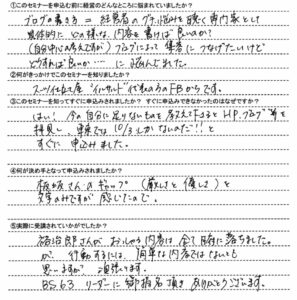 ①このセミナーを申込む前に経営のどんなところに悩まれていましたか？
ブログの書き方 = 経営者の
具体的に どの様な 内容を 書けば良いか？
(自分中心の考えですが) ブログによって 集客に つなげたいけど
どうすれば良いか… に 悩んでました。
②何がきっかけでこのセミナーを知りましたか？
代表の方のFBからです。
③このセミナーを知ってすぐに申込みされましたか？ すぐに申込みできなかったのはなぜですか？
はい！ 今の自分に足りないものを 考えて HP、ブログ等を
拝見し、東京では 10/3しかないのだ!! と
すぐに 申込みました。
④何が決め手となって申込みされましたか？
板坂さんのギャップ (厳しさと優しさ) と
文字のみですが 感じたので、
⑤実際に受講されていかがでしたか？
裕治郎さんが おっしゃる内容は 全て 腑に落ちました。
が、行動するには、簡単な内容ではないとも
思いますが 頑張ります。
BS63 リーダーに 御指名頂き ありがとうございます。